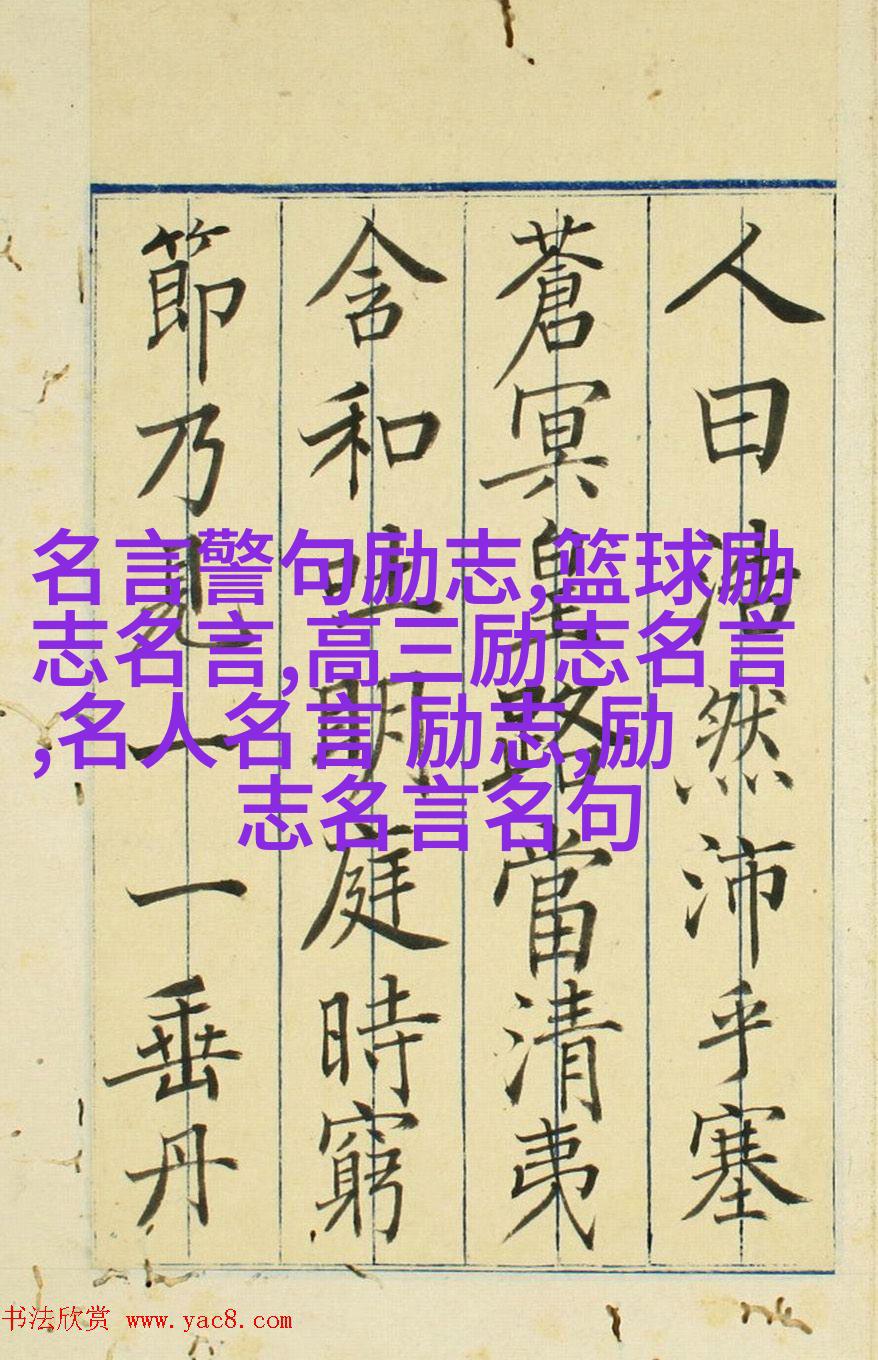 人曰浩然沛乎塞
蒼冥皇路當清夷
含和吐明庭時窮
節乃見一一垂丹
名言警句励志,篮球励
志名言,高三励志名言
,名人名言 励志,励
志名言名句
书法欣赏 www.yac8.com